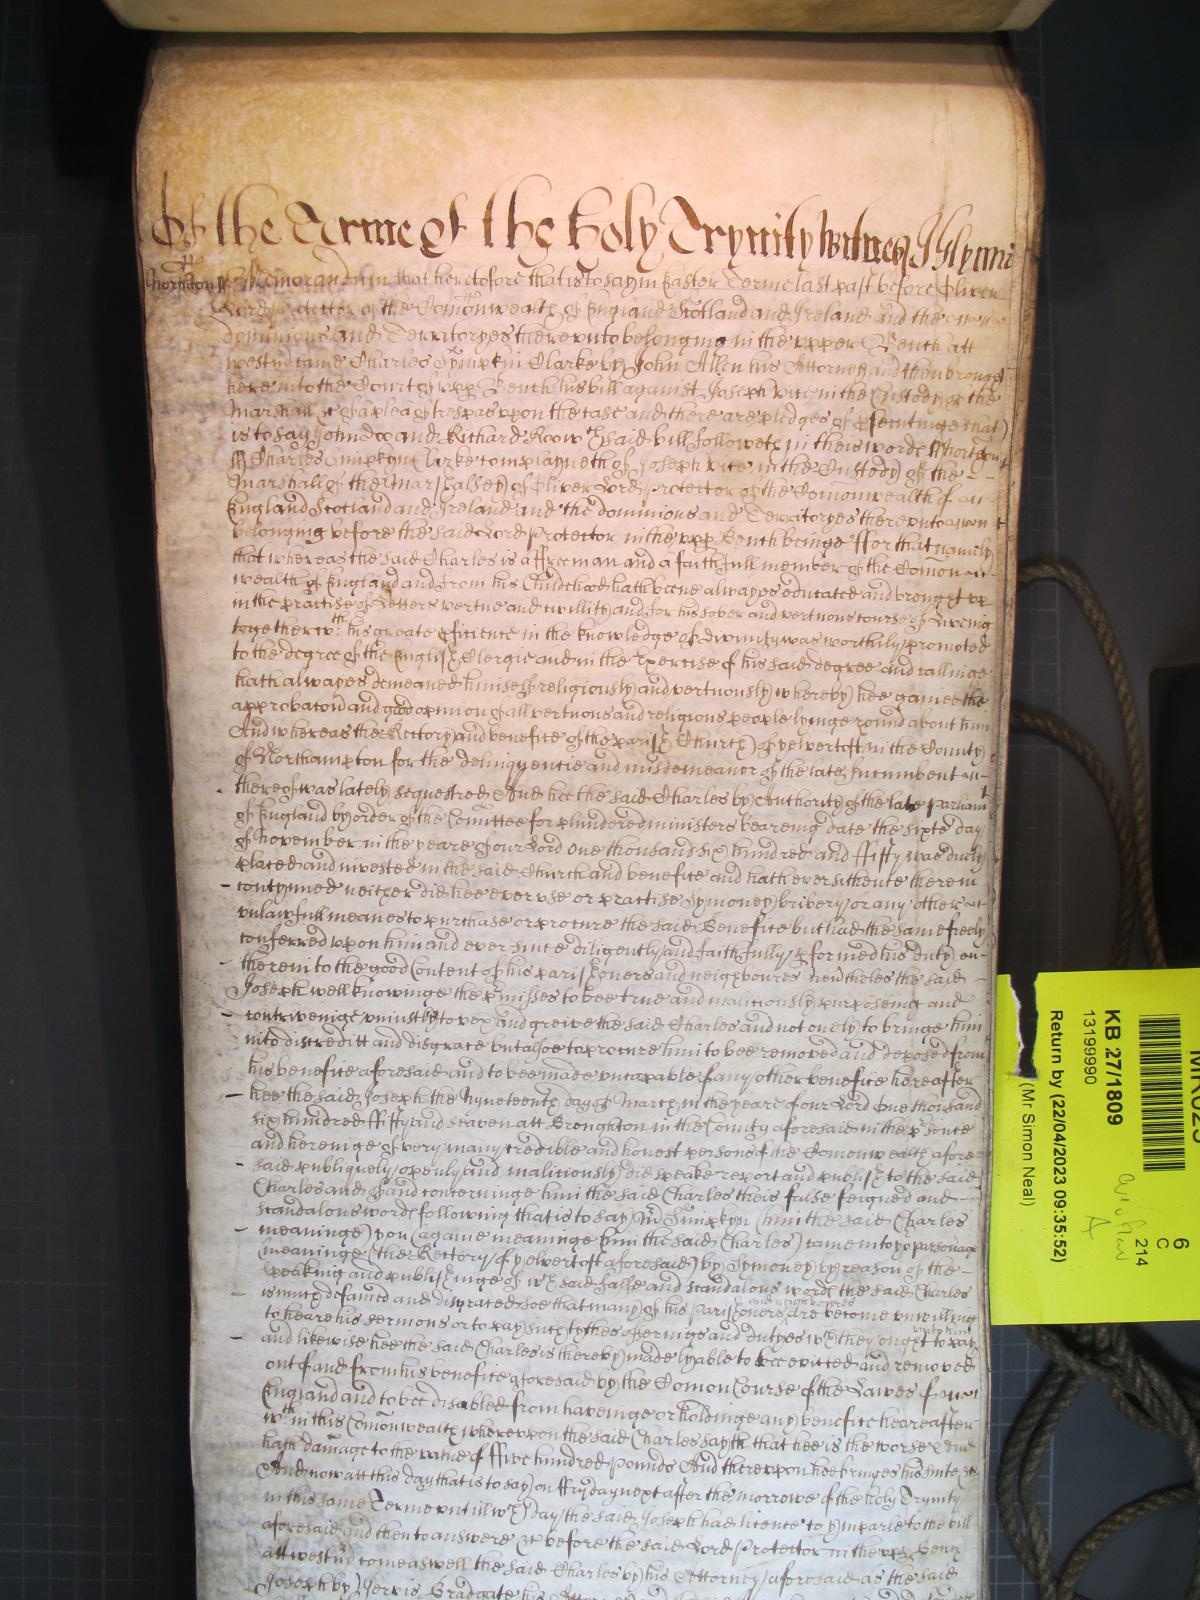 Of the Terme of the holy Trynity witnes J Glynn
Northton ss Memorandum that heretofore that is to say in Easter Terme last past before Oliver
Lord Protector of the Comonwealth of England Scotland and Ireland and the
dominions and Territoryes thereunto belonging in the upper Bench att
westmr came Charles Sympkin Clarke by John Allen his Attorney and then brought
here into the Court of upp Bench his bill against Joseph vice in the Custody of the
Marshall &c of a plea of trespas upon the case and there are pledges of psecutinge that
is to say John Doo and Richard Roo wch said bill followeth in theis words Northton
ss Charles Simpkyn Clarke complayneth of Joseph vice in the Custody of the
Marshall of the Marshalsey of Oliver Lord Protector of the Comonwealth of
England Scotland and Ireland and the dominions and Territoryes thereunto
belonging before the said Lord Protector in the upp Bench beinge ffor that namely
that whereas the said Charles is a ffree man and a faithfull member of the Comon
wealth of England and from his Childehood hath beene alwayes educated and brought up
in the practise of Letters vertue and civility and for his sober and vertuous course of Liveing
together wth his greate eficience in the knowledge of divinity was worthily promoted
to the degree of the English Clergie and in the Exercise of his said degree and callinge
hath alwayes demeaned himself religiously and vertuously whereby hee gained the
approbacon and good opinion of all vertuous and religious people lyinge round about him
And whereas the Rectory and benefice of the parish Church of yelvertoft in the County
of Northampton for the delinquencie and misdemeanor of the late Incumbent
thereof was lately sequestred And hee the said Charles by Authority of the late parliamt
of England by order of the Comittee for plundered ministers beareing date the sixte day
of November in the yeare of our Lord One thousand six hundred and ffifty was duely
placed and invested in the said Church and benefice and hath ever sithence therein
contynued neither did hee ever use or practise Symoney bribery or any other
unlawfull meanes to purchase or procure the said Benefice but had the same freely
conferred upon him and ever since diligently and faithfully pformed his duty
therein to the good Content of his parishoners and neighboures nevtheles the said
Joseph well knowinge the pmisses to bee true and maliciously purposeing and
contriveinge uniustly to vex and greive the said Charles and not onely to bringe him
into discreditt and disgrace but alsoe to procure him to bee removed and deposed from
his benefice aforesaid and to bee made uncapable of any other benefice hereafter
hee the said Joseph the Nyneteenth day of March in the yeare of our Lord One thousand
six hundred ffifty and seaven att Broughton in the County aforesaid in the psence
and hereinge of very many credible and honest persons of the Comonwealth afore
said publiquely openly and maliciously did speake report and publish to the said
Charles and of and concerninge him the said Charles theis false feigned and
scandalous words following that is to say Mr Simpkyn (him the said Charles
meaninge) you (againe meaninge him the said Charles) came into yor parsonage
(meaninge the Rectory of yelvertoft aforesaid) by Symoney by reason of the
speaking and publishinge of wch said false and scandalous words the said Charles
is much defamed and disgraced soe that many of his parishoners and neighboures are become unwilling
to heare his sermons or to pay such tythes offerings and dutyes wch they ought to pay unto him
and likewise hee the said Charles is thereby made lyable to bee evicted and removed
out of and from his benefice aforesaid by the Comon Course of the Lawes of
England and to bee disabled from haveinge or holdinge any benefice heareafter
wthin this Comonwealth whereupon the said Charles sayth that hee is the worse And
hath damage to the value of ffive hundred pounds And thereupon hee bringes his suite &c
And now att this day that is to say on ffryday next after the morrowe of the holy Trynity
in this same Terme untill wch day the said Joseph had licence to ymparle to the bill
aforesaid and then to answere &c before the said Lord Protector in the upp Bench
att westmr come aswell the said Charles by his Attorney aforesaid as the said
Joseph by Jervis Bradgate his
KB 27/1809
13199990
Return by (22/04/2023 09:35:52)
(Mr Simon Neal)
6
C
214